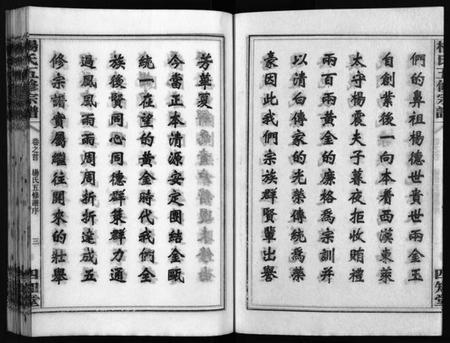 們的鼻祖楊德世貴世兩金玉
自創業後一向本着西漢東萊
太守楊震夫子暮夜拒收賄禮
兩百兩黃金的廉格爲宗訓并
以清白傳家的光榮傳統爲榮
豪因此我們宗族群賢輩出譽
芳華夏
今當正本清源安定團結金甌
統一在望的黃金時代我們全
族後賢同心同德群策群力通
過風風雨雨周周折折達成五
修宗譜實屬繼往開來的壯舉
楊氏五修宗譜
卷之首 楊氏五修譜序
三
四知堂